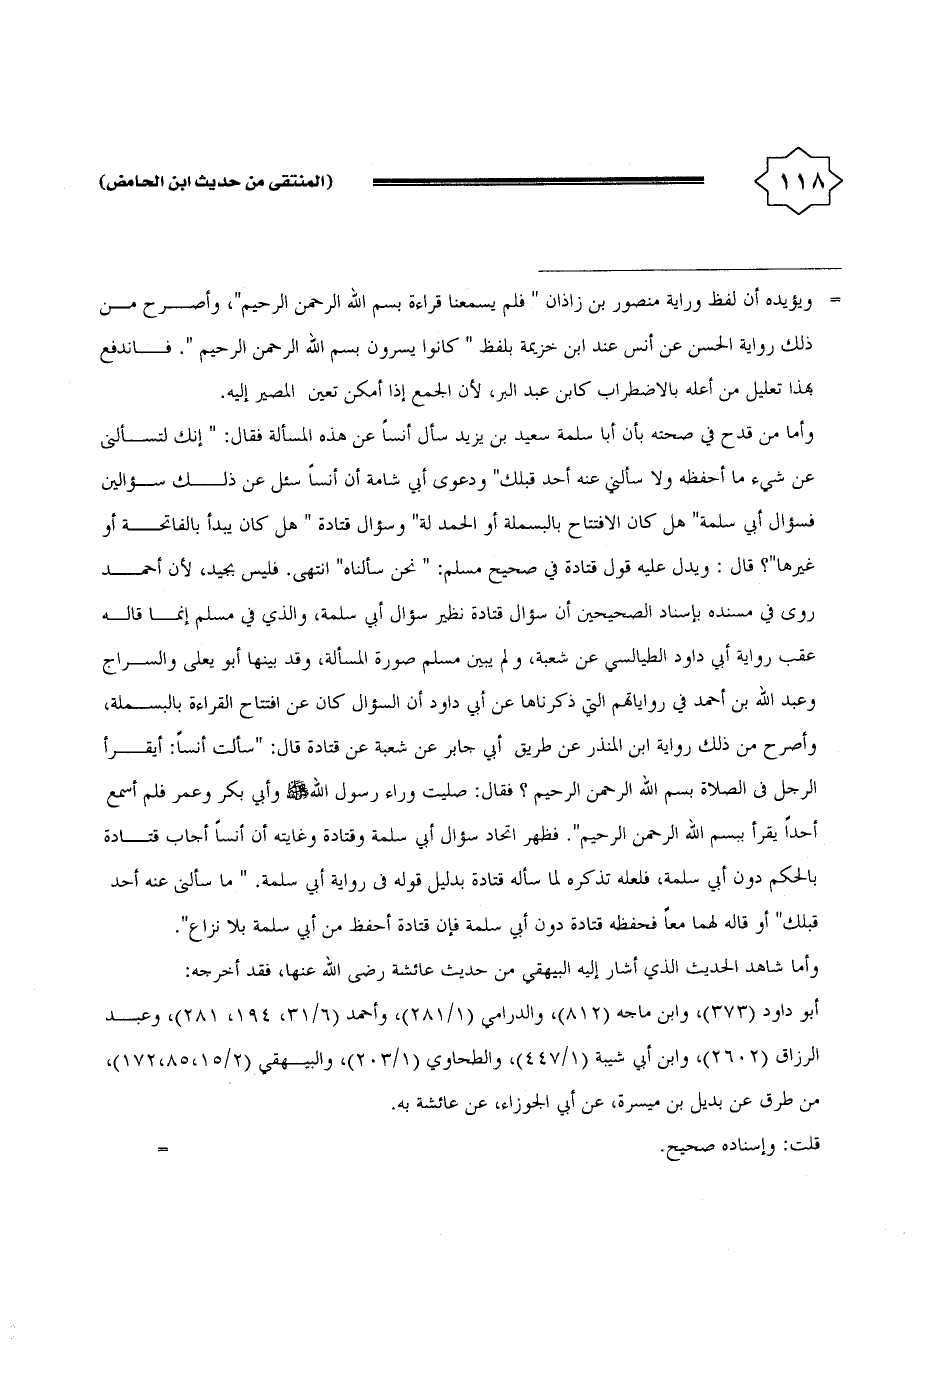 ١١٨
(المنتقى من حديث ابن الحامض)
= ويؤيده أن لفظ وراية منصور بن زاذان " فلم يسمعنا قراءة بسم الله الرحمن الرحيم"، وأصرح من
ذلك رواية الحسن عن أنس عند ابن خزيمة بلفظ " كانوا يسرون بسم الله الرحمن الرحيم ". فاندفع
بهذا تعليل من أعله بالاضطراب كابن عبد البر، لأن الجمع إذا أمكن تعين المصير إليه.
وأما من قدح في صحته بأن أبا سلمة سعيد بن يزيد سأل أنساً عن هذه المسألة فقال: " إنك لتسألنى
عن شيء ما أحفظه ولا سألني عنه أحد قبلك" ودعوى أبي شامة أن أنساً سئل عن ذلك سؤالين
فسؤال أبي سلمة" هل كان الافتتاح بالبسملة أو الحمد لة" وسؤال قتادة " هل كان يبدأ بالفاتحة أو
غيرها"؟ قال : ويدل عليه قول قتادة في صحيح مسلم: " نحن سألناه" انتهى. فليس بجيد، لأن أحمد
روى في مسنده بإسناد الصحيحين أن سؤال قتادة نظير سؤال أبي سلمة، والذي في مسلم إنما قاله
عقب رواية أبي داود الطيالسي عن شعبة، و لم يبين مسلم صورة المسألة، وقد بينها أبو يعلى والسراج
وعبد الله بن أحمد في رواياتهم التي ذكرناها عن أبي داود أن السؤال كان عن افتتاح القراءة بالبسملة،
وأصرح من ذلك رواية ابن المنذر عن طريق أبي جابر عن شعبة عن قتادة قال: "سألت أنساً: أيقرأ
الرجل فى الصلاة بسم الله الرحمن الرحيم ؟ فقال: صليت وراء رسول الله ﷺ وأبي بكر وعمر فلم أسمع
أحداً يقرأ ببسم الله الرحمن الرحيم". فظهر اتحاد سؤال أبي سلمة وقتادة وغايته أن أنساً أجاب قتادة
بالحكم دون أبي سلمة، فلعله تذكره لما سأله قتادة بدليل قوله فى رواية أبي سلمة. " ما سألنى عنه أحد
قبلك" أو قاله لهما معاً فحفظه قتادة دون أبي سلمة فإن قتادة أحفظ من أبي سلمة بلا نزاع".
وأما شاهد الحديث الذي أشار إليه البيهقي من حديث عائشة رضى الله عنها، فقد أخرجه:
أبو داود (٣٧٣)، وابن ماجه (٨١٢)، والدرامي (٢٨١/١)، وأحمد (٣١/٦، ١٩٤، ٢٨١)، وعبد
الرزاق (٢٦٠٢)، وابن أبي شيبة (٤٤٧/١)، والطحاوي (٢٠٣/١)، والبيهقي (١٧٢،٨٥،١٥/٢)،
من طرق عن بديل بن ميسرة، عن أبي الجوزاء، عن عائشة به.
قلت: وإسناده صحيح. =